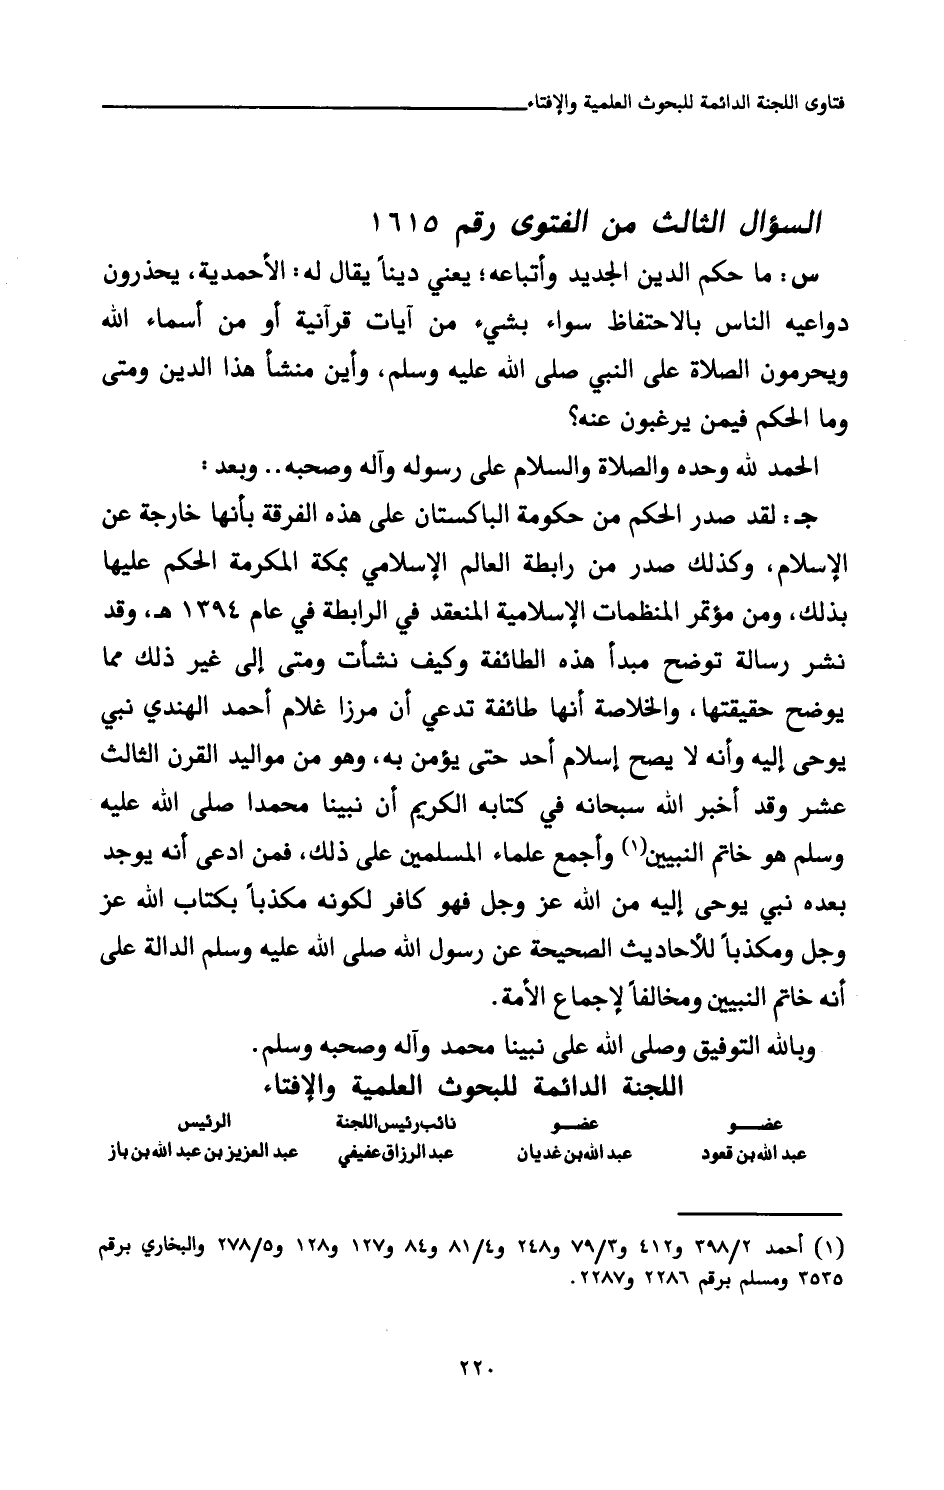 فتاوى اللجنة الدائمة للبحوث العلمية والإفتاء
السؤال الثالث من الفتوى رقم ١٦١٥
س: ما حكم الدين الجديد وأتباعه؛ يعني ديناً يقال له: الأحمدية، يحذرون
دواعيه الناس بالاحتفاظ سواء بشيء من آيات قرآنية أو من أسماء الله
ويحرمون الصلاة على النبي صلى الله عليه وسلم، وأين منشأ هذا الدين ومتى
وما الحكم فيمن يرغبون عنه؟
الحمد لله وحده والصلاة والسلام على رسوله وآله وصحبه.. وبعد:
جـ: لقد صدر الحكم من حكومة الباكستان على هذه الفرقة بأنها خارجة عن
الإسلام، وكذلك صدر من رابطة العالم الإسلامي بمكة المكرمة الحكم عليها
بذلك، ومن مؤتمر المنظمات الإسلامية المنعقد في الرابطة في عام ١٣٩٤ هـ، وقد
نشر رسالة توضح مبدأ هذه الطائفة وكيف نشأت ومتى إلى غير ذلك مما
يوضح حقيقتها، والخلاصة أنها طائفة تدعي أن مرزا غلام أحمد الهندي نبي
يوحى إليه وأنه لا يصح إسلام أحد حتى يؤمن به، وهو من مواليد القرن الثالث
عشر وقد أخبر الله سبحانه في كتابه الكريم أن نبينا محمدا صلى الله عليه
وسلم هو خاتم النبيين(١) وأجمع علماء المسلمين على ذلك، فمن ادعى أنه يوجد
بعده نبي يوحى إليه من الله عز وجل فهو كافر لكونه مكذباً بكتاب الله عز
وجل ومكذباً للأحاديث الصحيحة عن رسول الله صلى الله عليه وسلم الدالة على
أنه خاتم النبيين ومخالفاً لإجماع الأمة.
وبالله التوفيق وصلى الله على نبينا محمد وآله وصحبه وسلم.
اللجنة الدائمة للبحوث العلمية والإفتاء
عضـــو عضـــو نائب رئيس اللجنة الرئيس
عبد الله بن قعود عبد الله بن غديان عبد الرزاق عفيفي عبد العزيز بن عبد الله بن باز
(١) أحمد ٣٩٨/٢ و٤١٢ و٧٩/٣ و٢٤٨ و٨١/٤ و٨٤ و١٢٧ و١٢٨ و٢٧٨/٥ والبخاري برقم
٣٥٣٥ ومسلم برقم ٢٢٨٦ و٢٢٨٧.
٢٢٠